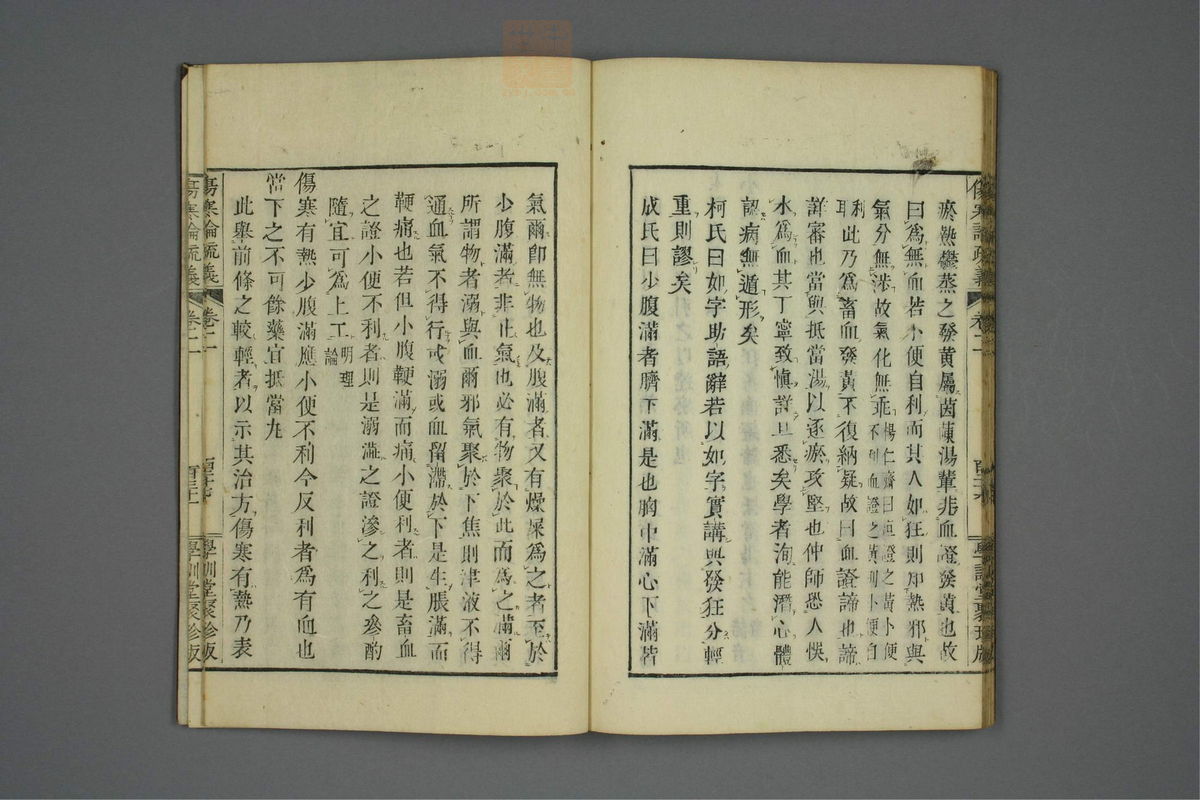 瘀熱鬱蒸之發黃屬茵蔯湯輩非血證發黃也故
曰爲無血若小便自利而其人如狂則卽熱邪與
氣分無涉故氣化無乖楊仁齋曰疸證之黃小便不利血證之黃則小便自
利耳此乃爲畜血發黃不復納疑故曰血證諦也諦
詳審也當與抵當湯以逐瘀攻堅也仲師恐人悞
水爲血其丁寧致愼詳且悉矣學者洵能潛心體
認病無遁形矣
柯氏曰如字助語辭若以如字實講與發狂分輕
重則謬矣
成氏曰少腹滿者臍下滿是也胸中滿心下滿若
氣爾卽無物也及腹滿者又有燥屎爲之者至於
少腹滿者非止氣也必有物聚於此而爲之滿爾
所謂物者溺與血爾邪氣聚於下焦則津液不得
通血氣不得行或溺或血留滯於下是生脹滿而
鞕痛也若但小腹鞕滿而痛小便利者則是畜血
之證小便不利者則是溺澁之證滲之利之參酌
隨宜可爲上工明理論
傷寒有熱少腹滿應小便不利今反利者爲有血也
當下之不可餘藥宜抵當丸
此擧前條之較輕者以示其治方傷寒有熱乃表
傷寒論疏義
卷二
學訓堂聚珍版